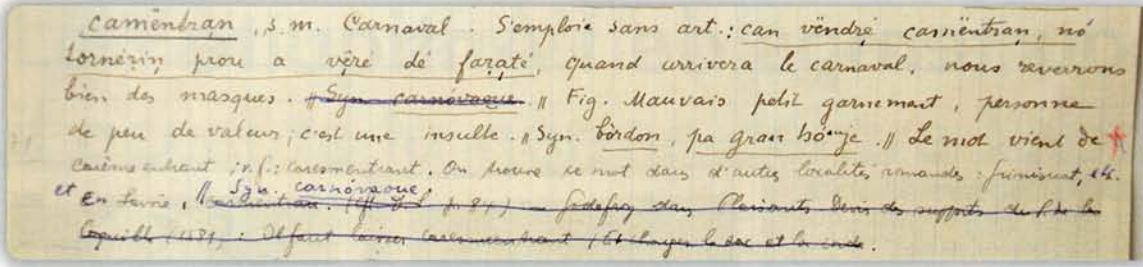 camentran, s. m. Carnaval. S'emploie sans art.: can vëndré camëntran, nó
tornérin prou a vêré dé faraté, quand arrivera le carnaval, nous reverrons
bien des masques. || Syn. carnóvaque. || Fig. Mauvais petit garnement, personne
de peu de valeur; c'est une insulte. || Syn. bòrdon, pa gran bónje. || Le mot vient de
carême entrant; : caresmentrant. On trouve ce mot dans d'autres localités romandes: , etc.
et en Savoie. || Syn. carnóvaque.
dans Plaisants Devis des supposts du S. de la
Coquille (1589): Il faut laisser caresmentrant